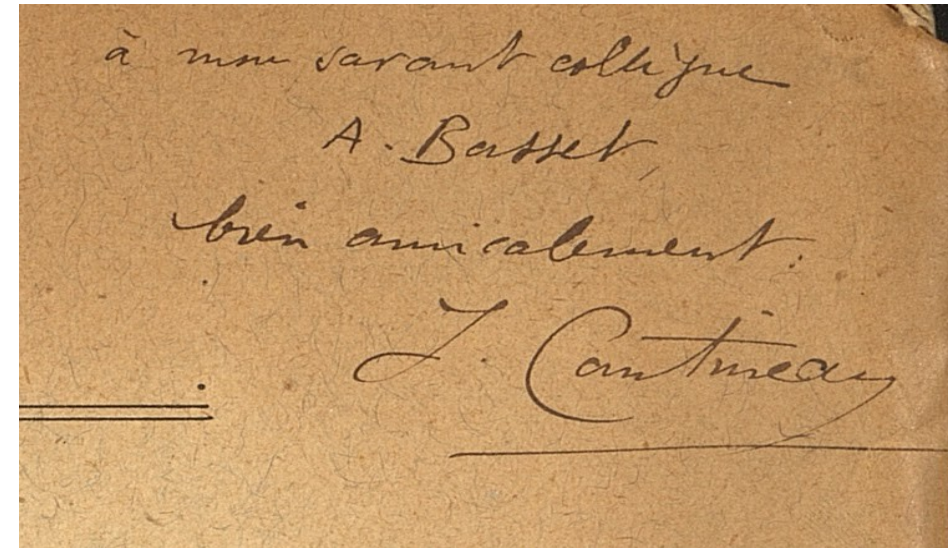 à mon savant collègue
A. Basset,
bien amicalement.
J. Cantineau